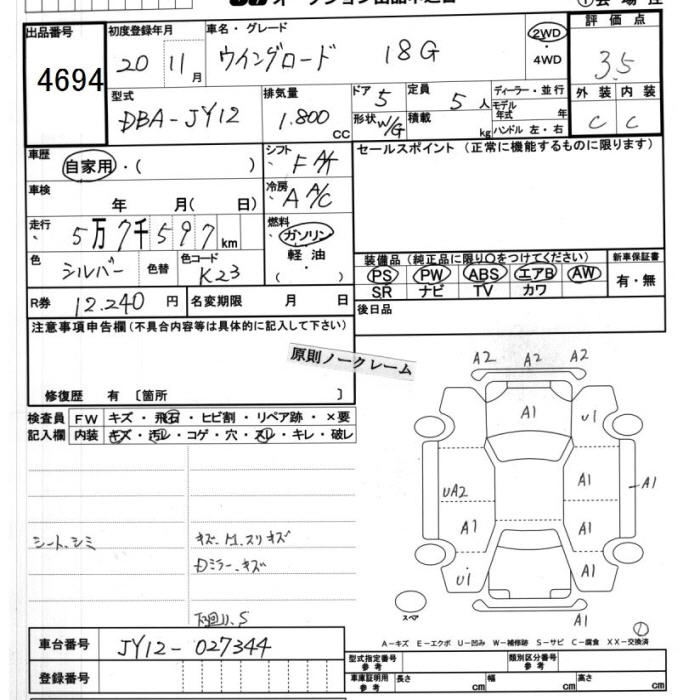 出品番号
4694
初度登録年月
20 11月
車名・グレード
ウイングロード 18G
2WD
・
4WD
評価点
3.5
外装 内装
C C
型式
DBA-JY12
排気量
1.800
cc
ドア 5
定員 5 人
形状 W/G
積載 kg
ディーラー・並行
モデル年式 年
ハンドル 左・右
車歴
自家用・( )
シフト
F A/T
セールスポイント (正常に機能するものに限ります)
車検
年 月( 日)
冷房
A A/C
走行
5万7千597km
燃料
ガソリン
・
軽油
・
( )
色
シルバー
色替
色コード
K23
装備品 (純正品に限り○をつけてください)
新車保証書
PS PW ABS エアB AW
SR ナビ TV カワ
有・無
R券 12.240 円
名変期限 月 日
後日品
注意事項申告欄(不具合内容等は具体的に記入して下さい)
原則ノークレーム
修復歴 有 〔箇所 〕
検査員
記入欄
FW キズ・飛石・ヒビ割・リペア跡・×要
内装 キズ・汚レ・コゲ・穴・スレ・キレ・破レ
A2 A2 A2
A1
U1
UA2
A1
A1
A1
A1
U1
A1
A1
スペア
シート、シミ
Dミラー、キズ
車台番号
JY12-027344
登録番号
A-キズ E-エクボ U-凹み W-補修跡 S-サビ C-腐食 XX-交換済
型式指定番号
参考
類別区分番号
参考
車庫証明用
参考
長さ cm
幅 cm
高さ cm